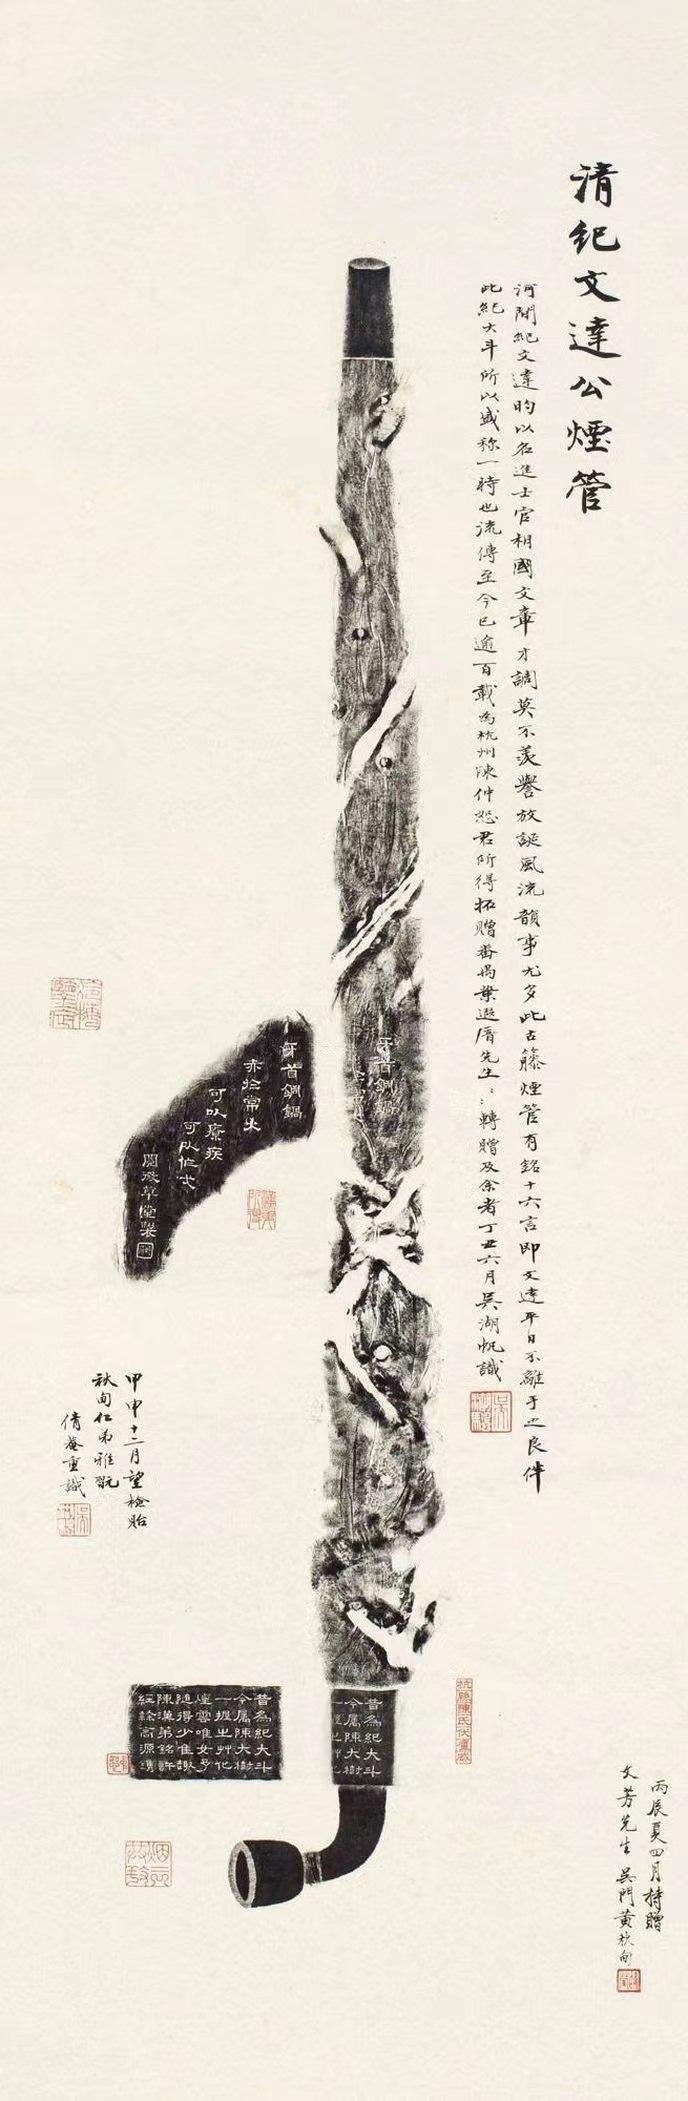 清紀文達公煙管
河間紀文達昀以名進士官相國文章才調莫不羨譽放誕風流韻事尤多此古藤煙管有銘十六言即文達平日不離手之良伴
此紀大斗所以盛稱一時也流傳至今已逾百載為杭州陳仲恕君所得拓贈番禺葉遐庵先生〻〻轉贈及余者丁丑六月吳湖帆識
牙首銅鍋
牙首銅鍋
赤於常火
可以療疾
可以作戈
閱微草堂製
甲申十二月望檢貽
秋甸仁弟雅翫
倩菴重識
昔為紀大斗
今屬陳大樹
一握之艸化
煙雲唯女予
隨得少佳趣
陳漢弟銘許
昔為紀大斗
今屬陳大樹
杭縣陳氏伏廬藏
丙辰夏四月持贈
文芳先生 吳門黃秋甸